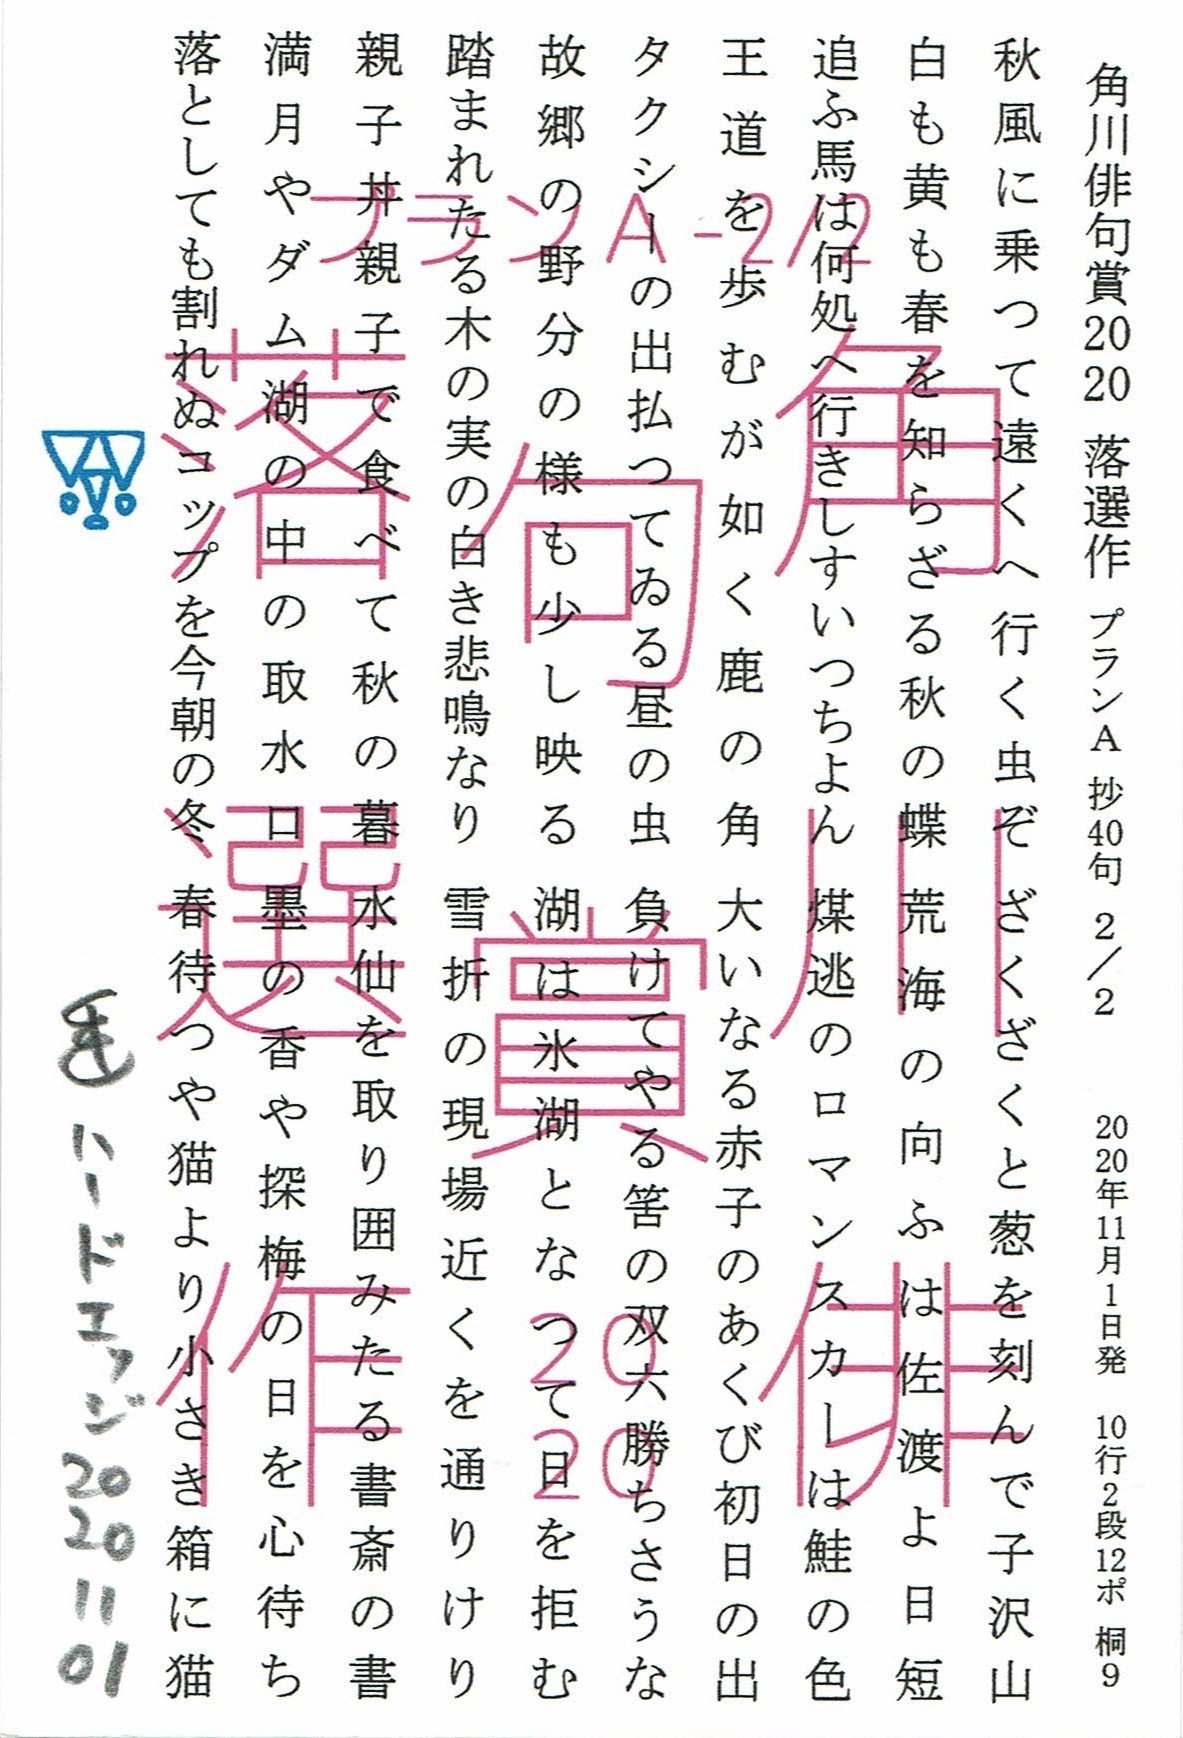 角川俳句賞2020 落選作 プランA 抄40句 2/2 2020年11月1日発 10行2段12ポ 桐9
秋風に乗つて遠くへ行く虫ぞ
白も黄も春を知らざる秋の蝶
追ふ馬は何処へ行きしすいつちよん
王道を歩むが如く鹿の角
タクシーの出払つてゐる昼の虫
故郷の野分の様も少し映る
踏まれたる木の実の白き悲鳴なり
親子丼親子で食べて秋の暮
満月やダム湖の中の取水口
落としても割れぬコップを今朝の冬
ざくざくと葱を刻んで子沢山
荒海の向ふは佐渡よ日短
煤逃のロマンスカーは鮭の色
大いなる赤子のあくび初日の出
負けてやる筈の双六勝ちさうな
湖は氷湖となつて日を拒む
雪折の現場近くを通りけり
水仙を取り囲みたる書斎の書
墨の香や探梅の日を心待ち
春待つや猫より小さき箱に猫
プランA-2/2
角川俳
句賞2020
落選作
ハードエッジ 2020 11 01